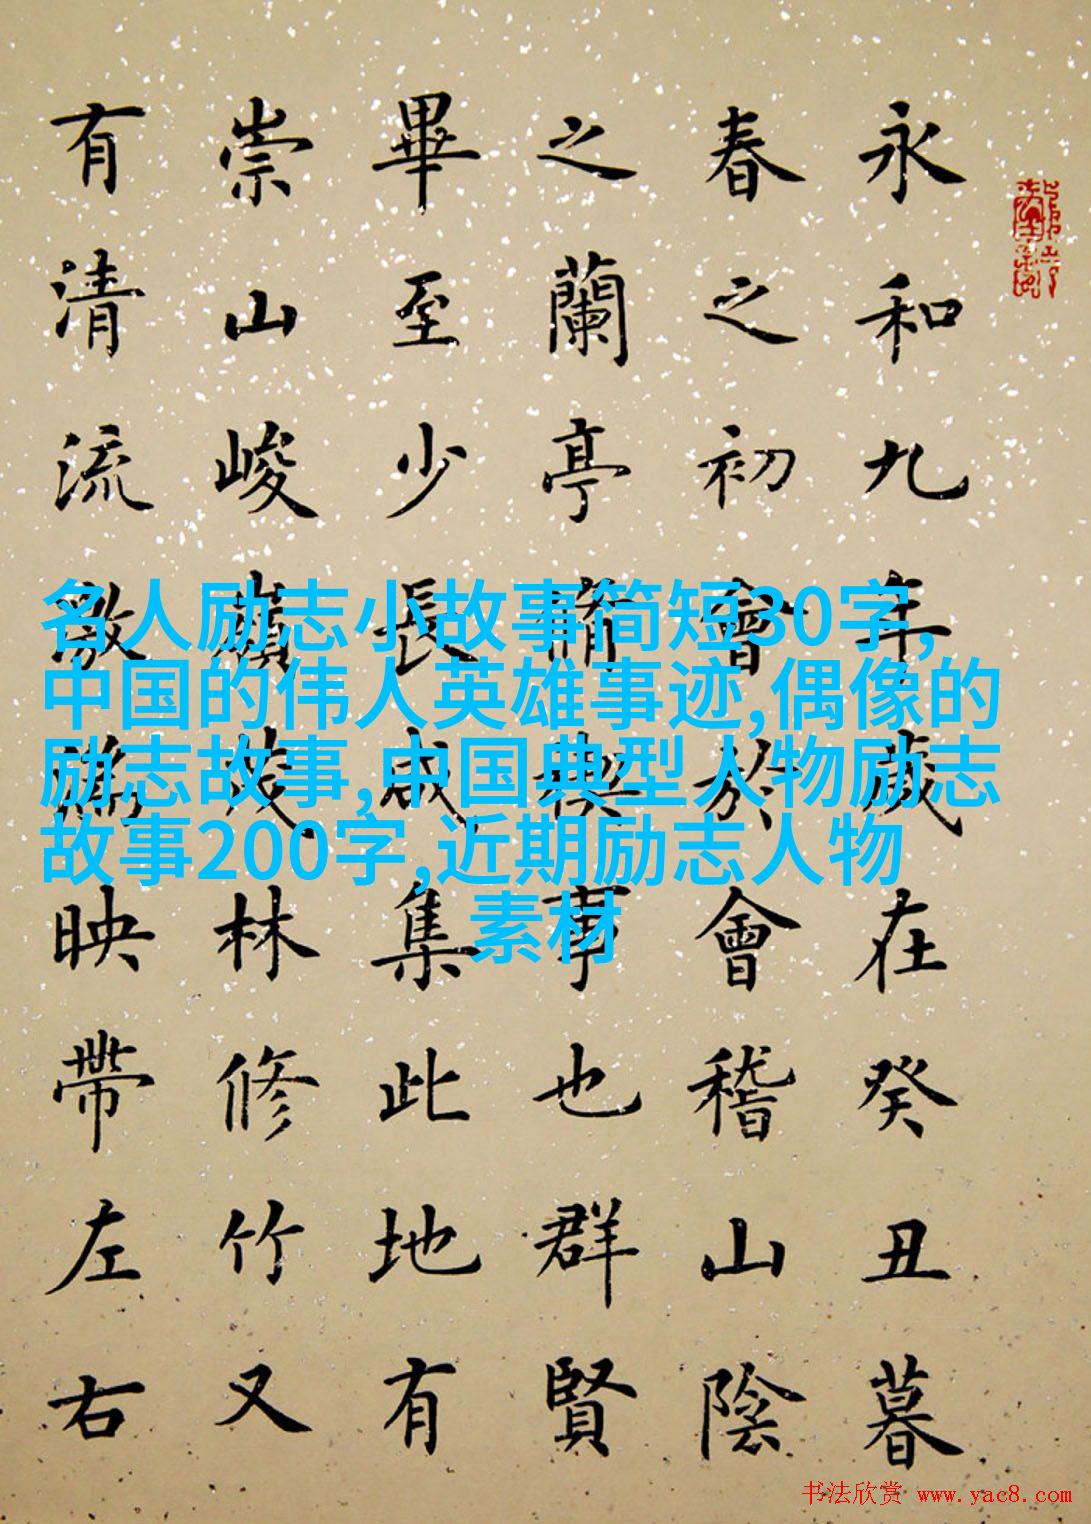 永和九年歲在癸丑暮
春之初會於會稽山陰
之蘭亭脩禊事也群賢
畢至少長咸集此地有
崇山峻嶺茂林修竹又
有清流激湍映帶左右
名人励志小故事简短30字,
中国的伟人英雄事迹,偶像的
励志故事,中国典型人物励志
故事200字,近期励志人物
素材
书法欣赏 www.yac8.com